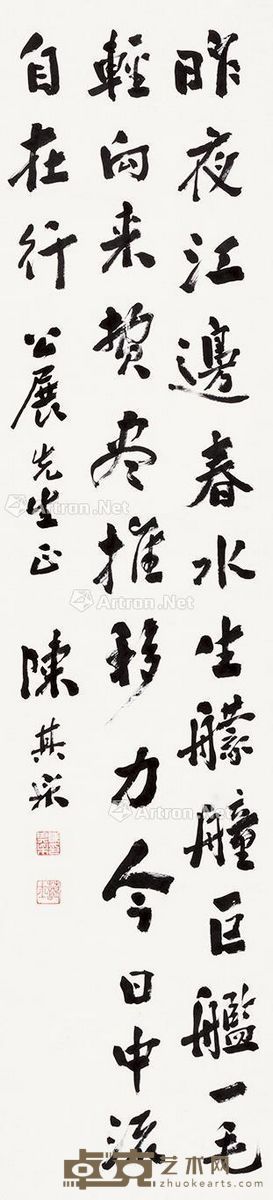 昨夜江邊春水生艨艟巨艦一毛
輕向来費盡推移力今日中流
自在行
公展先生正
陳其采
Artron.Net
Artron.Net
Artron.Net
Artron.Net
卓克艺术网
zhuokearts.com